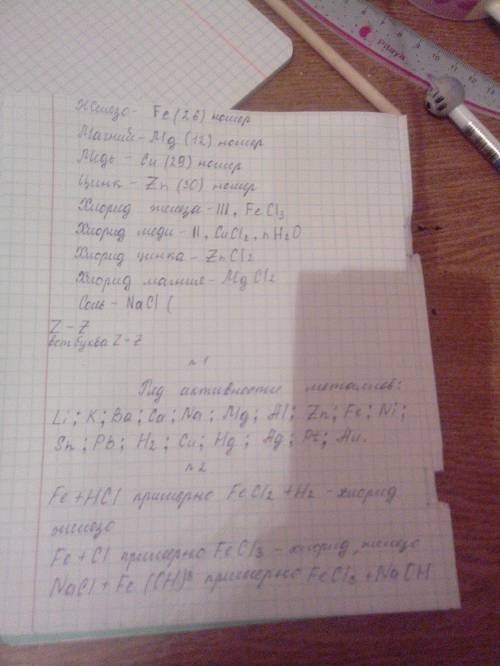 Железо - Fe (26) номер
Магний - Mg (12) номер
Медь - Cu (29) номер
Цинк - Zn (30) номер
Хлорид железа - III, FeCl3
Хлорид меди - II, CuCl2, nH2O
Хлорид цинка - ZnCl2
Хлорид магние - MgCl2
Соль - NaCl (
Z - Z
вот буква Z - Z
n 1
Ряд активностие металлов:
Li; K; Ba; Ca; Na; Mg; Al; Zn; Fe; Ni;
Sn; Pb; H2; Cu; Hg; Ag; Pt; Au.
n 2
Fe + HCl примерно FeCl2 + H2 - хлорид
железо
Fe + Cl примерно FeCl3 - хлорид железо
NaCl + Fe (OH)3 примерно FeCl3 + NaOH
9 10 11 12 13 14